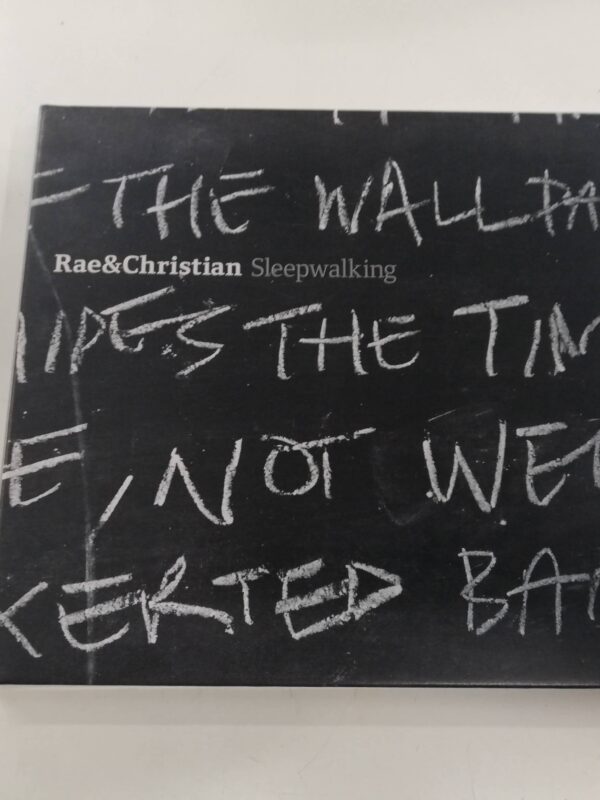 THE WALLPA
Rae&Christian Sleepwalking
IPES THE TIM
E, NOT WE
KERTED BA